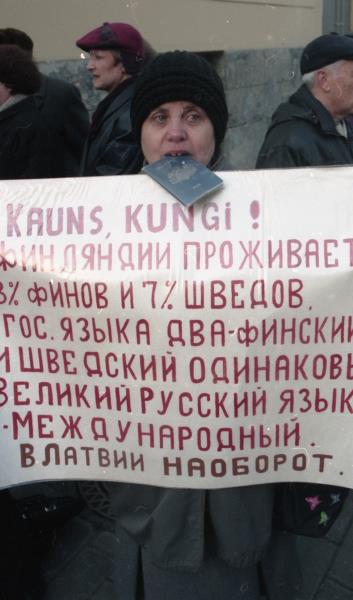 KAUNS, KUNGI !
ФИНЛЯНДИИ ПРОЖИВАЕТ
3% ФИНОВ И 7% ШВЕДОВ,
ГОС. ЯЗЫКА ДВА-ФИНСКИЙ
И ШВЕДСКИЙ ОДИНАКОВЫ
ВЕЛИКИЙ РУССКИЙ ЯЗЫК
-МЕЖДУНАРОДНЫЙ.
В ЛАТВИИ НАОБОРОТ.